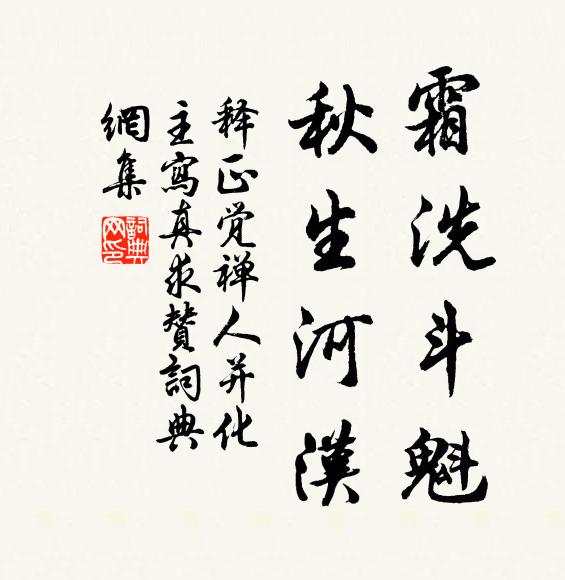 霜洗斗魁
秋生河漢
释正觉禅人并化
主寫真求贊詞典
網集
詞典网印